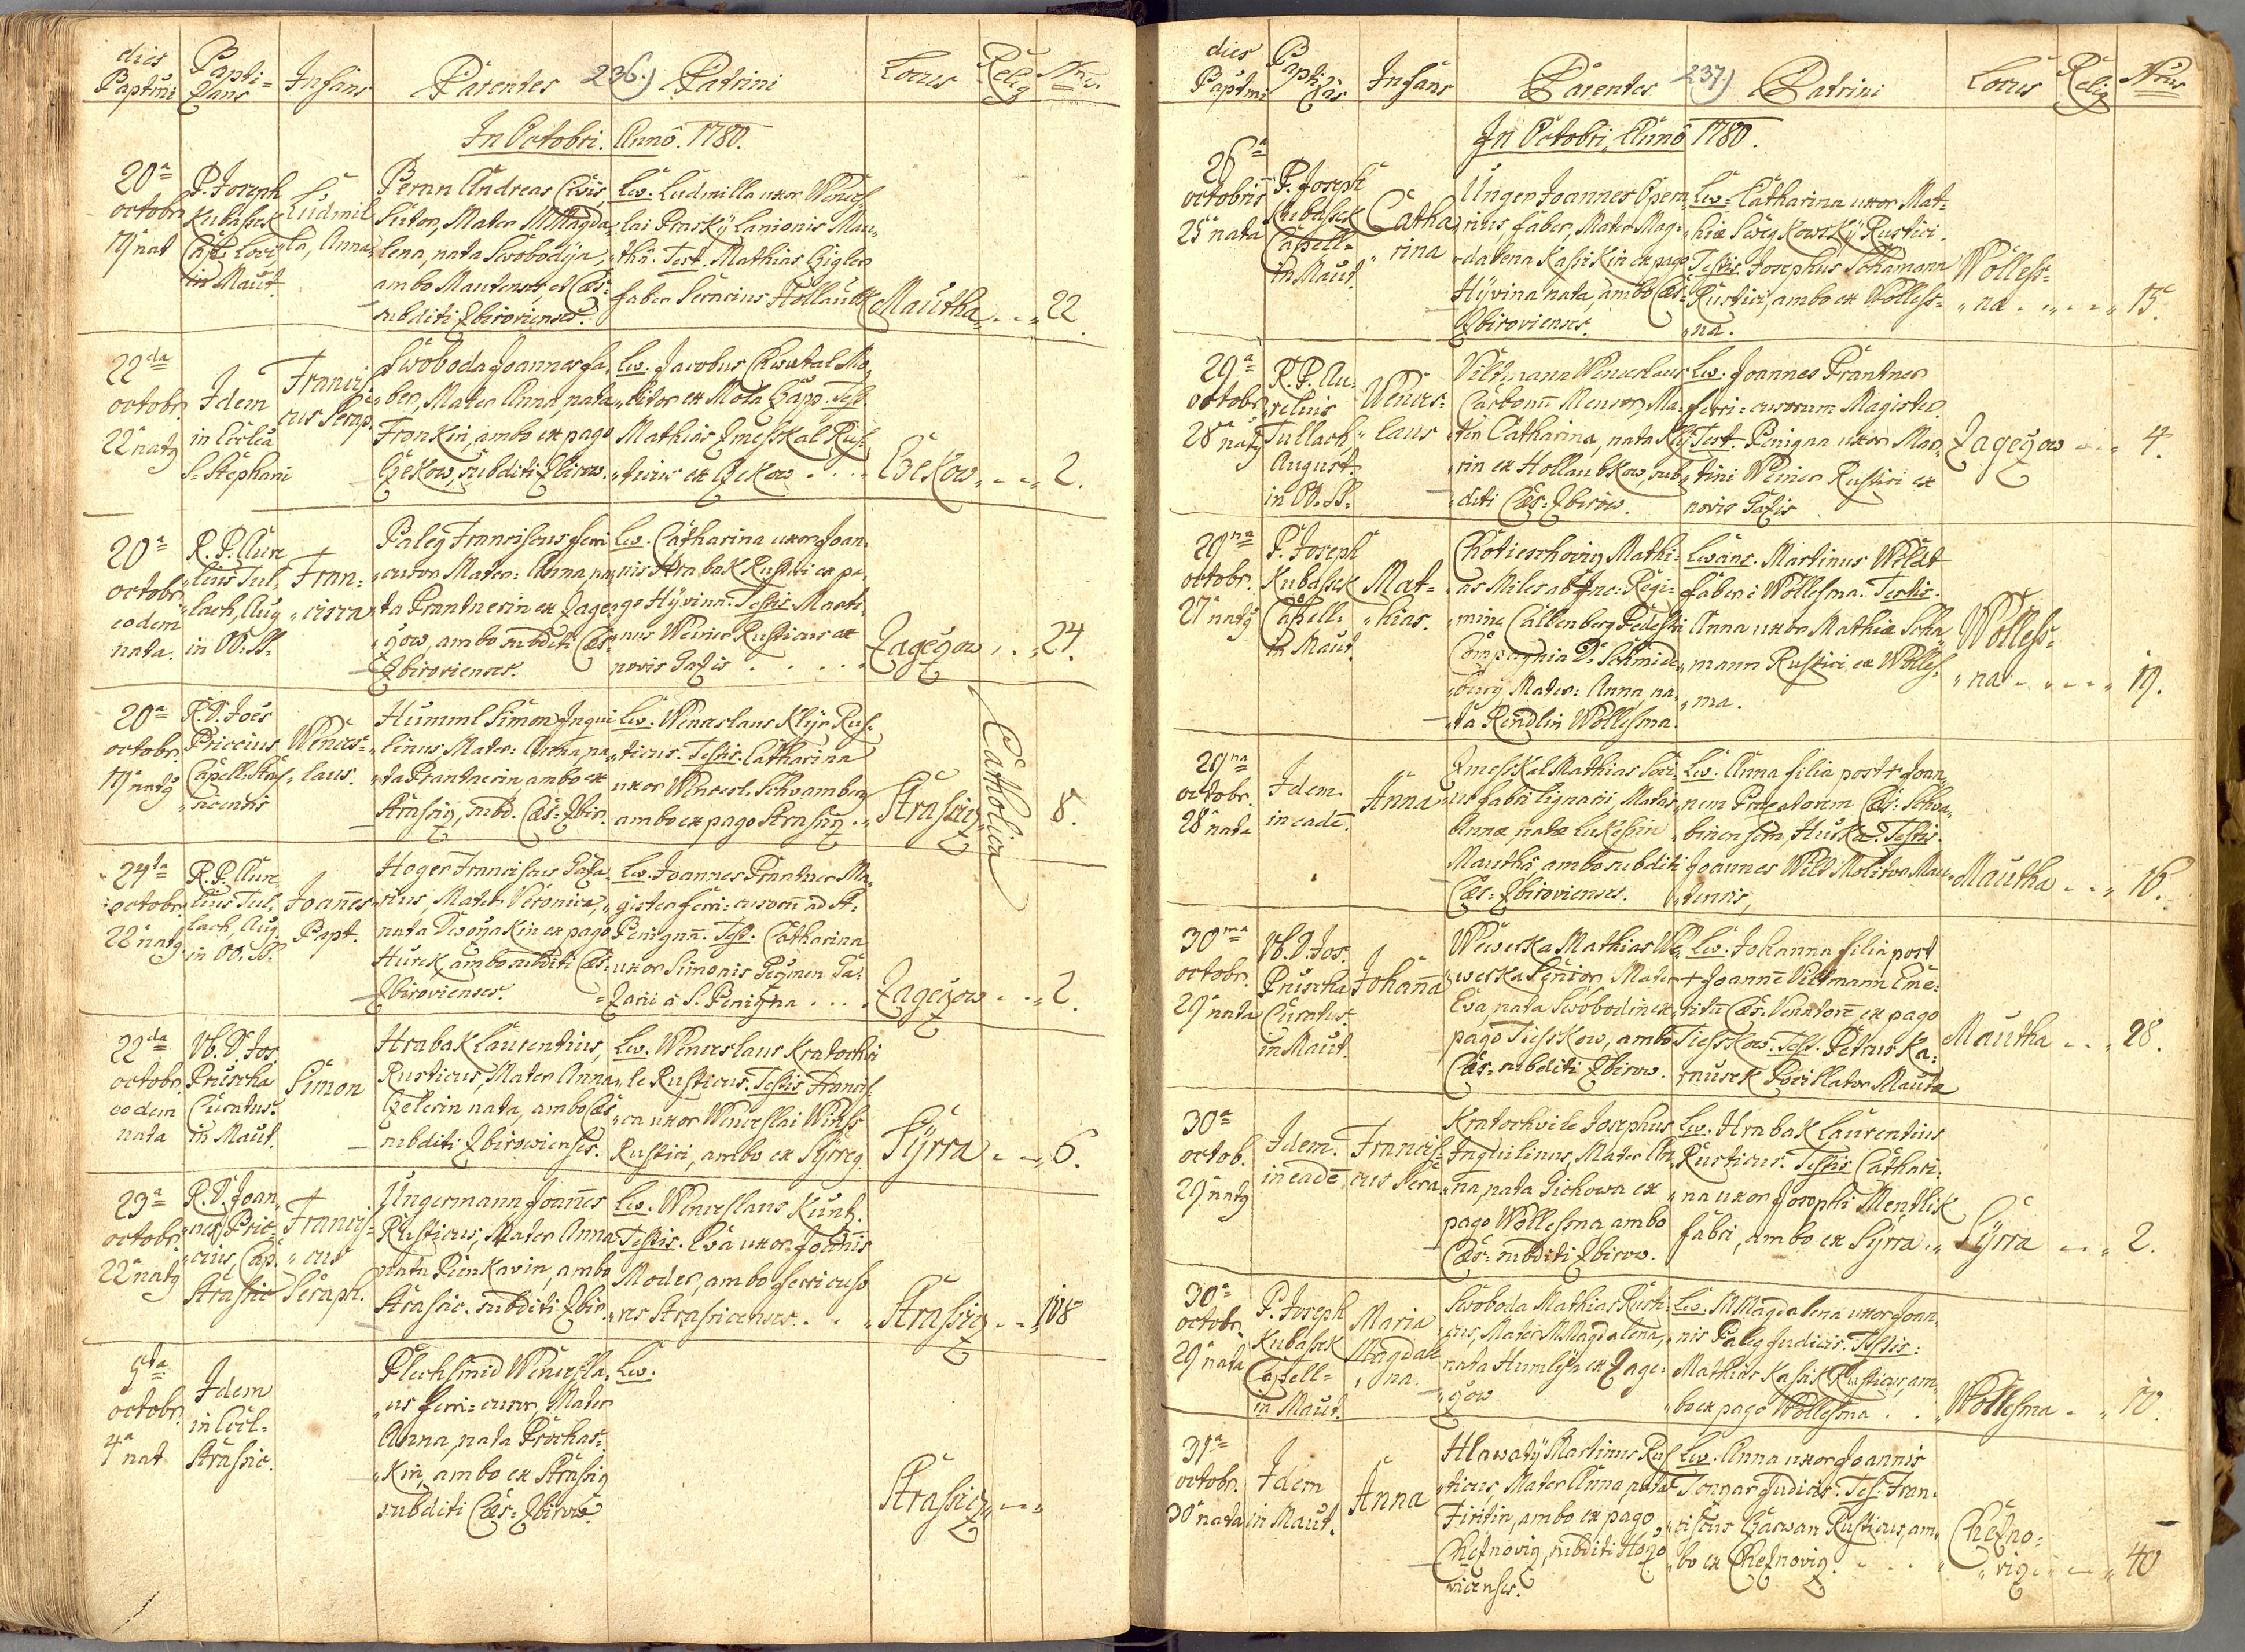 dies Baptmi
Bapti=
zans
Infans
Parentes
236.)
Patrini
Locus
Relig
Nrus
In Octobri. Anno. 1780.
20a
octobr.
19a nat
P. Joseph
Kubassek
Cap. Loci
in Maut.
Ludmil
la, Anna
Peran Andreas Civis
Sutor, Mater M Magda„
lena, nata Swobodÿn,
ambo Mautens, et Cæs=
subditi Zbirovienses.
Lev. Ludmilla uxor Wences
lai Prnskÿ Lanionis Mau„
th. Test. Mathias Zigler
faber Serarius Hollaubk
Mautha
22.
22da
octobr.
22a nat9
Idem
in Ecclia
S. Stephani
Francis
cus Serap.
Swoboda Joannes fa„
ber, Mater Anna, nata
Fronkin, ambo ex pago
Czekow, subditi Zbirow.
Lev. Jacobus Chwatal Mo„
litor ex Mola Czapp. Test.
Mathias Zmesskal Rus
ticus ex Czekow
Czekow
2.
20a
octobr.
eodem
nata.
R. P. Aure
lius Tul„
lach, Aug
in OO. SS.
Fran=
cisca
Paleg Franciscus ferri
cusor Mater: Anna, na
ta Prantnerin ex Zage„
czow, ambo subditi Cæs=
Zbirovienses.
Lev. Catharina uxor Joan„
nis Hrabak Rustici ex pa„
go Hÿvina. Testis Marti
nus Weiner Rusticus ex
novis Gazis
Zageczow
24.
20a
octobr.
19a nat9
R. D. Joes
Priccius
Capell. Stras
sicensis
Wences=
laus.
Humml Simon Inqui
linus, Mater: Anna, na
ta Prantnerin ambo ex
Strassicz, subd. Cæs= Zbir.
Lev. Wenceslaus Klÿr Rus
ticus. Testis. Catharina
uxor Wencesl. Schvamberg
ambo ex pago Strassicz
Strassicz
8.
Catholica
24ta
octobr.
22a nat9
R. P. Aure
lius Tul„
lach, Aug.
in OO. SS.
Joannes
Bapt.
Hoger Franciscus Gaza„
rius, Mater Veronica,
nata Dworzakin ex pago
Hurek ambo subditi Cæs=
Zbirovienses.
Lev. Joannes Prantner Ma„
gister ferri=cusorum ad St=
Benignã. Test. Catharina
uxor Simonis Ga=
zarii à S. Benigna
Zageczow
2.
22da
octobr.
eodem
nata
Vb. D. Jos.
Pruscha
Curatus
in Maut.
Simon
Hrabak Laurentius,
Rusticus, Mater Anna
Czelerin nata, ambo Cæs
subditi Zbirowienses.
Lev. Wenceslaus Kratochvi
le Rusticus. Testis Francis
ca uxor Wenceslai Winss
Rustici, ambo ex Sÿrreg
Sÿrra
6.
23a
octobr.
22a nat9
R. D. Joan„
nes Pric=
cius, Cap.
Strassic
Francis=
cus
Seraph.
Ungermann Joannes
Rusticus, Mater Anna
nata Pienkavin, ambo
Strassic. subditi Zbir.
Lev. Wenceslaus Kunt.
Testis. Eva uxor Joannis
Moder, ambo ferri cuso
res Strassicenses.
Strassicz
118
5ta
octobr.
4a nat
Idem
in Eccl=
Strassic.
Plechsmid Wencesla„
us ferri=cusor, Mater
Anna, nata Prochas=
kin, ambo ex Strassicz
subditi Cæs= Zbirow.
Lev.
Strassicz
dies
Baptmi
Bapti
zãs
Infans
Parentes
237.)
Patrini
Locus
Relig
Nrus
In Octobri, Anno 1780.
26a
octobris
25a nata
P. Joseph
Kubassek
Capell=
in Maut.
Catha
rina
Unger Joannes Oper
rius, faber, Mater Mag=
dalena Kassikin ex pago
Hÿvina nata, ambo Cæs=
Zbirovienses.
Lev= Catharina uxor Mat=
hiæ Swegkowskÿ Rustici.
Testis. Josephus Schamann
Rustici, ambo ex Wolless=
na.
Wolless=
na
15.
29a
octobr.
28a nat9
R. P. Au„
relius
Tullach,
August.
in OO. SS.
Wences=
laus
Vildmann Wenceslaus
Carbonũ Mensor, Ma„
ter Catharina, nata Klÿ
rin ex Hollaubkow, sub
diti Cæs= Zbirow.
Lev. Joannes Prantner
ferri=cusorum Magister
Test. Benigna uxor Mar„
tini Weiner Rustici ex
novis Gazis
Zageczow
4.
29na
octobr.
27a nat9
P. Joseph
Kubassek
Capell=
in Maut.
Mat=
hias.
Chotieschovicz Mathi=
as Miles ab Inc: Regi=
mine Callenberg Pedestri
Compagnia D. Schmide
burg Mater: Anna na„
ta Rendlin Wollessna.
Levans. Martinus Wildt
faber è Wollessna. Testis.
Anna uxor Mathiæ Scha„
mann Rustici ex Wolles=
na.
Wolless=
na
19.
29na
octobr.
28a nata
Idem
in eadẽ.
Anna
Zmesskal Mathias Soci
us fabri lignarii, Matris
Annæ, natæ Lukessin
Mauthã, ambo subditi
Cæs= Zbirovienses.
Lev. Anna filia post + Joan„
nem Procuratorem Cæs=
Huska. Testis.
Joannes Wild Molitor Mau
tensis,
Mautha
16.
30ma
octobr.
29a nata
Vb. D. Jos.
Pruscha
Curatus
in Maut.
Johanna
Wewerka Mathias We
werka Senior, Mater
Eva, nata Swobodin ex
pago Tiesskow, ambo
Cæs= subditi Zbirow.
Lev. Johanna filia post
+ Joannẽ Viltmann Eme=
ritũ Cæs. Venatorẽ ex pago
Tiesskow. Test. Petrus Ka=
rnusek Pocillator Mautæ
Mautha
28.
30a
octob.
29a nat9
Idem.
in eadẽ
Francis=
cus Sera
Kratochvile Josephus
Inquilinus, Mater An„
na, nata Tichowa ex
pago Wollessna ambo
Cæs= subditi Zbirow.
Lev. Hrabak Laurentius
Rusticus. Testis Cathari=
na uxor Josephi Mentlik
fabri, ambo ex Sÿrra
Sÿrra
2.
30a
octobr.
29a nata
P. Joseph
Kubassek
Capell=
in Maut.
Maria
Magdale
na.
Swoboda Mathias Rusti=
cus, Mater M Magdalena,
nata Humlÿn ex Zage=
czow
Lev. M Magdalena uxor Joan„
nis Paleg Judicis. Testis:
Mathias Kassik Rusticus, am„
bo ex pago Wollessna
Wollessna
10.
31a
octobr.
30a nata
Idem
in Maut.
Anna
Hlawatÿ Martinus Rus
ticus, Mater Anna, nata
Tiritin, ambo ex pago
Cheznovicz, subditi Horzo
vicenses.
Lev. Anna uxor Joannis
Tonnar Judicis. Tes. Fran„
ciscus Czarwan Rusticus, am„
bo ex Cheznovicz.
Chezno=
vicz
40